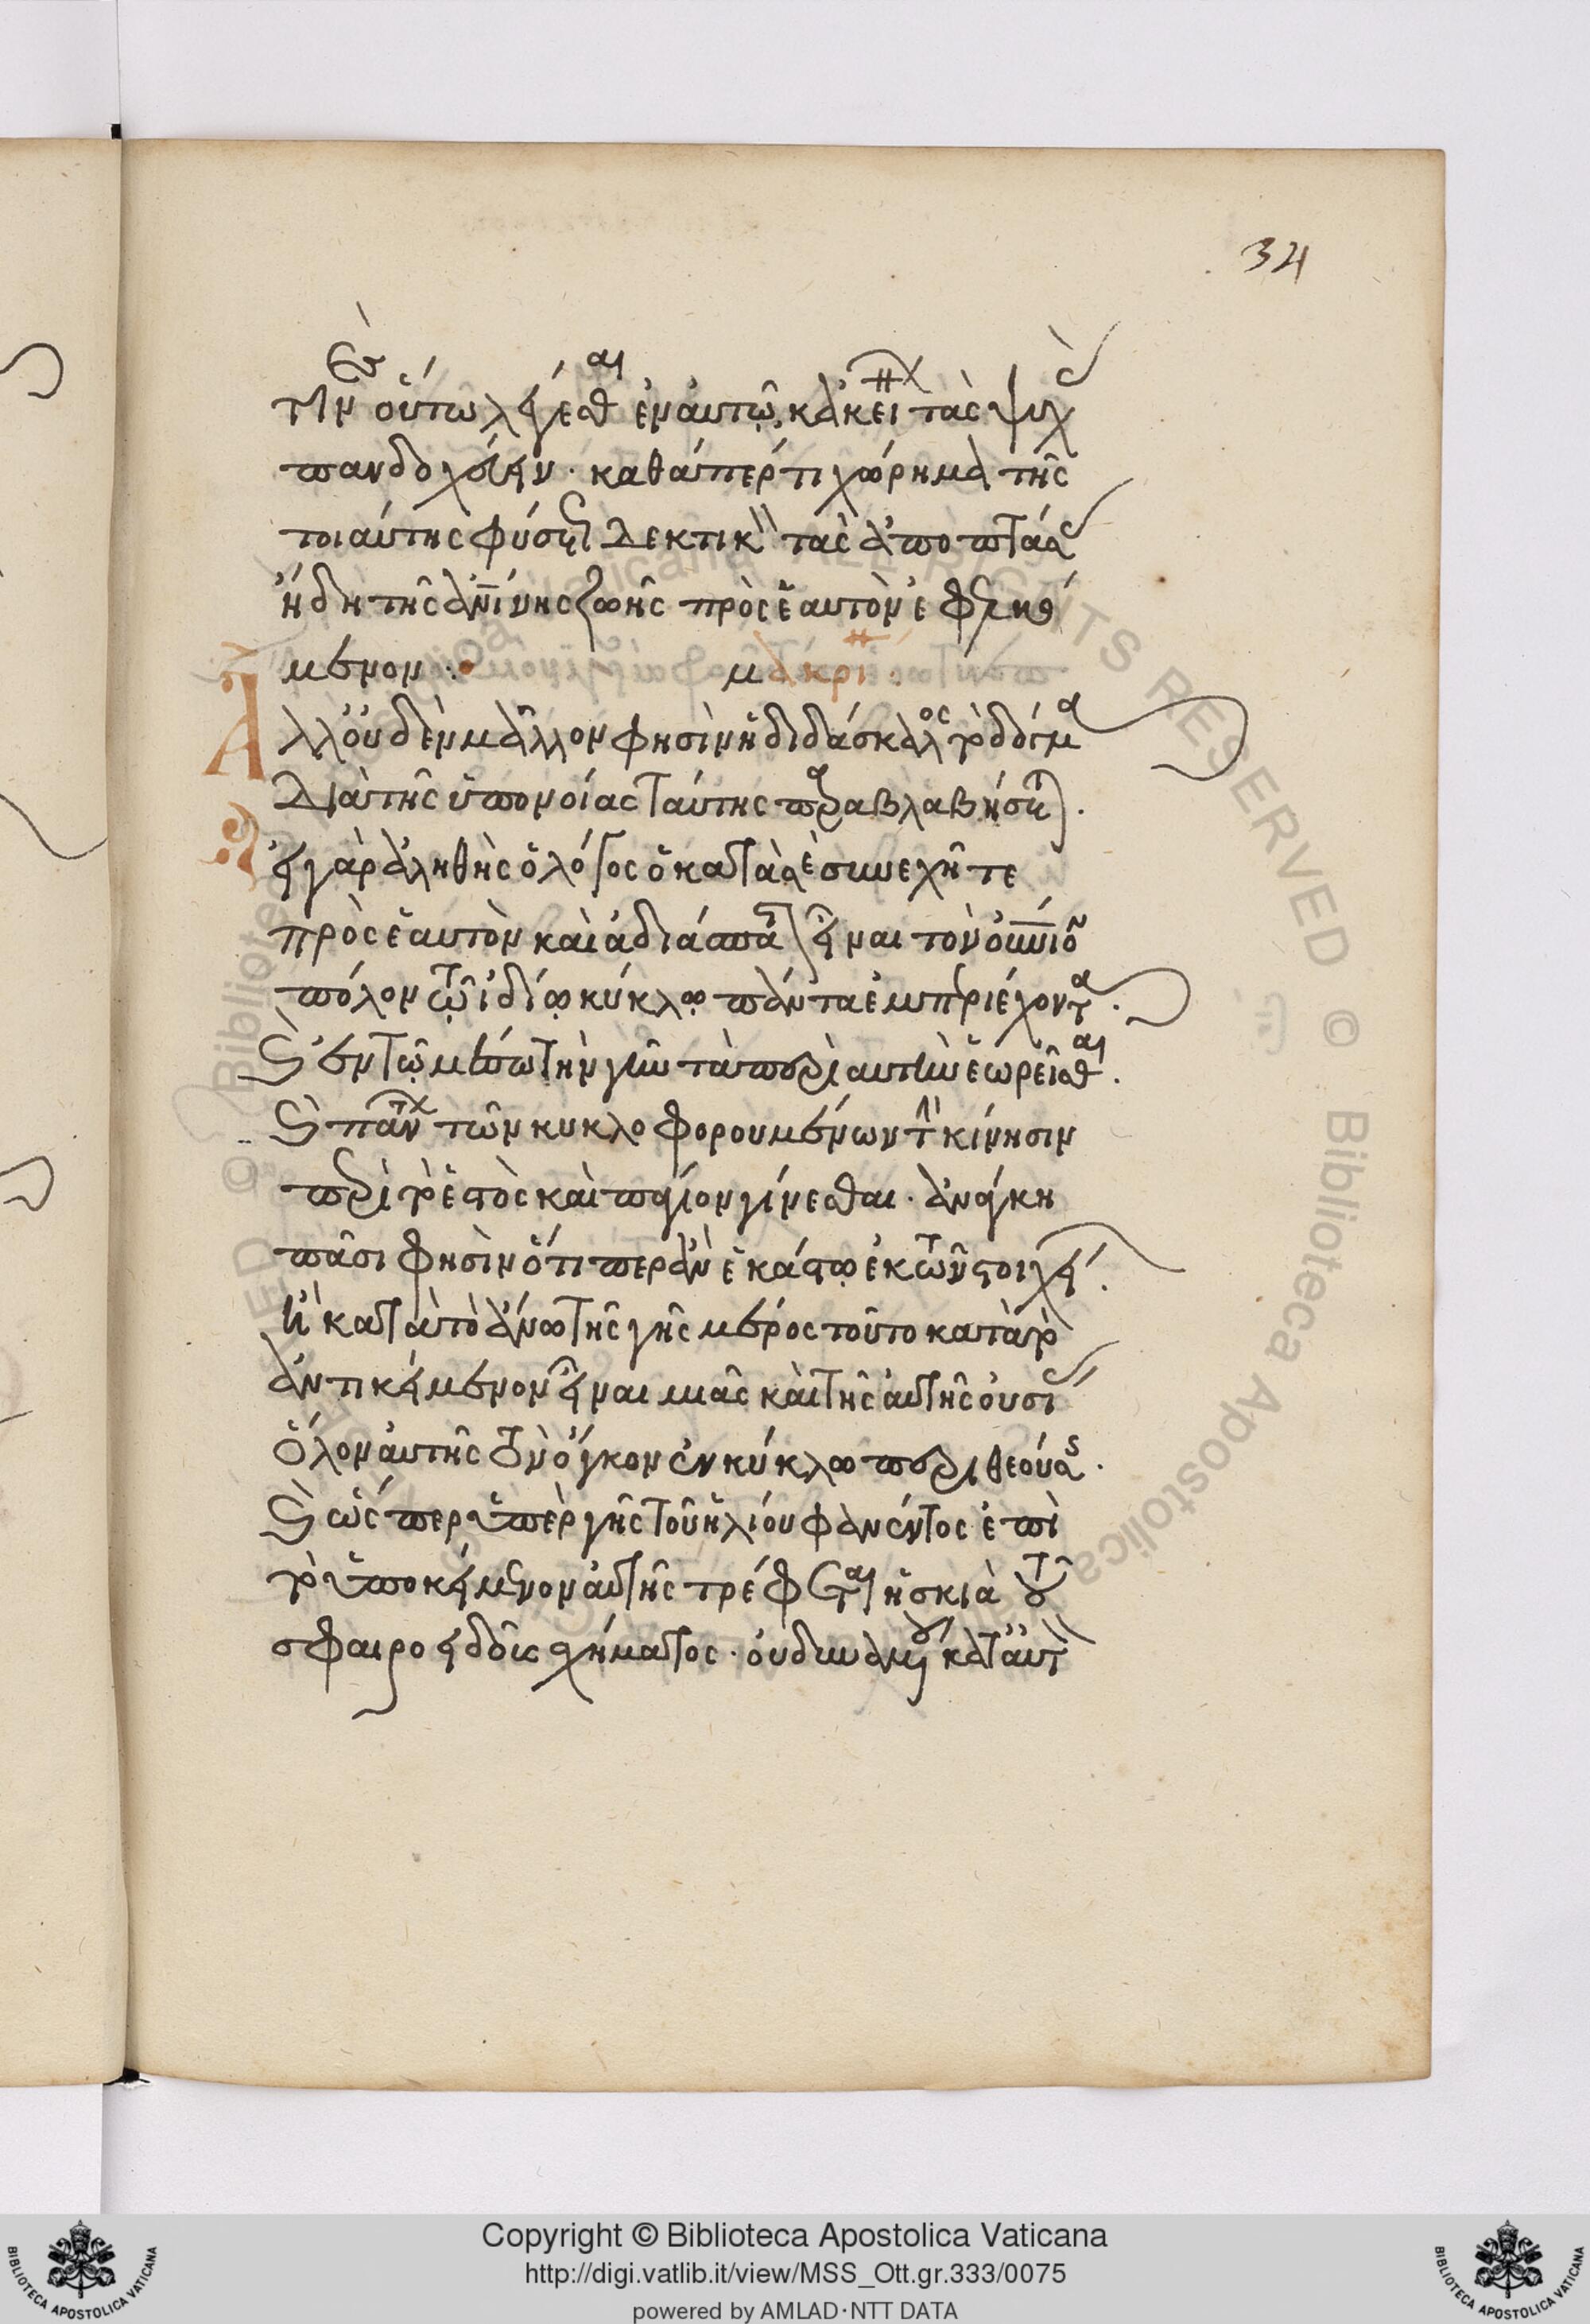 34
τιν οὕτω λέγεσθαι ἐν αὐτῷ κἀκεῖ τὰς ψυχὰς
πανδοχεύειν· καθάπερ τι χώρημα τῆς
τοιαύτης φύσεως δεκτικὸν τὰς ἀποπτάσας
ἤδη τῆς ἀνθρωπίνης ζωῆς πρὸς ἑαυτὸν ἐφελκό
μενον :
μακρι :
Ἀλλ' οὐδὲν μᾶλλον φησὶν ἡ διδάσκαλος τὸ δόγμα
διὰ τῆς ὑπονοίας ταύτης παραβλαβήσεται.
εἰ γὰρ ἀληθὴς ὁ λόγος ὁ κατὰ σὲ συνεχῆ τε
πρὸς ἑαυτὸν καὶ ἀδιάσπαστον εἶναι τὸν οὐράνιον
πόλον τῷ ἰδίῳ κύκλῳ πάντα ἐμπεριέχοντα.
καὶ ἐν τῷ μέσῳ τὴν γῆν τὰ περὶ αὐτὴν ἐωρεῖσθαι.
καὶ πάντων τῶν κυκλοφορουμένων τὴν κίνησιν
περὶ τὸ ἑστὸς καὶ πάγιον γίνεσθαι· ἀνάγκη
πᾶσι φησὶν ὅτι περ ἂν ἑκάστῳ ἐκ τῶν στοιχείων
ᾖ κατὰ τὸ ἄνω τῆς γῆς μέρος τοῦτο κατὰ τὸ
ἀντικείμενον εἶναι μιᾶς καὶ τῆς αὐτῆς οὐσίας
ὅλον αὐτῆς τὸν ὄγκον ἐν κύκλῳ περιθεούσης.
καὶ ὥσπερ ὑπὲρ γῆς τοῦ ἡλίου φανέντος ἐπὶ
τὸ ὑποκείμενον αὐτῆς τρέφεται ἡ σκιὰ τοῦ
σφαιροειδοῦς σχήματος· οὐ δυναμένου κατ' αὐτὸν
Copyright © Biblioteca Apostolica Vaticana
http://digi.vatlib.it/view/MSS_Ott.gr.333/0075
powered by AMLAD·NTT DATA